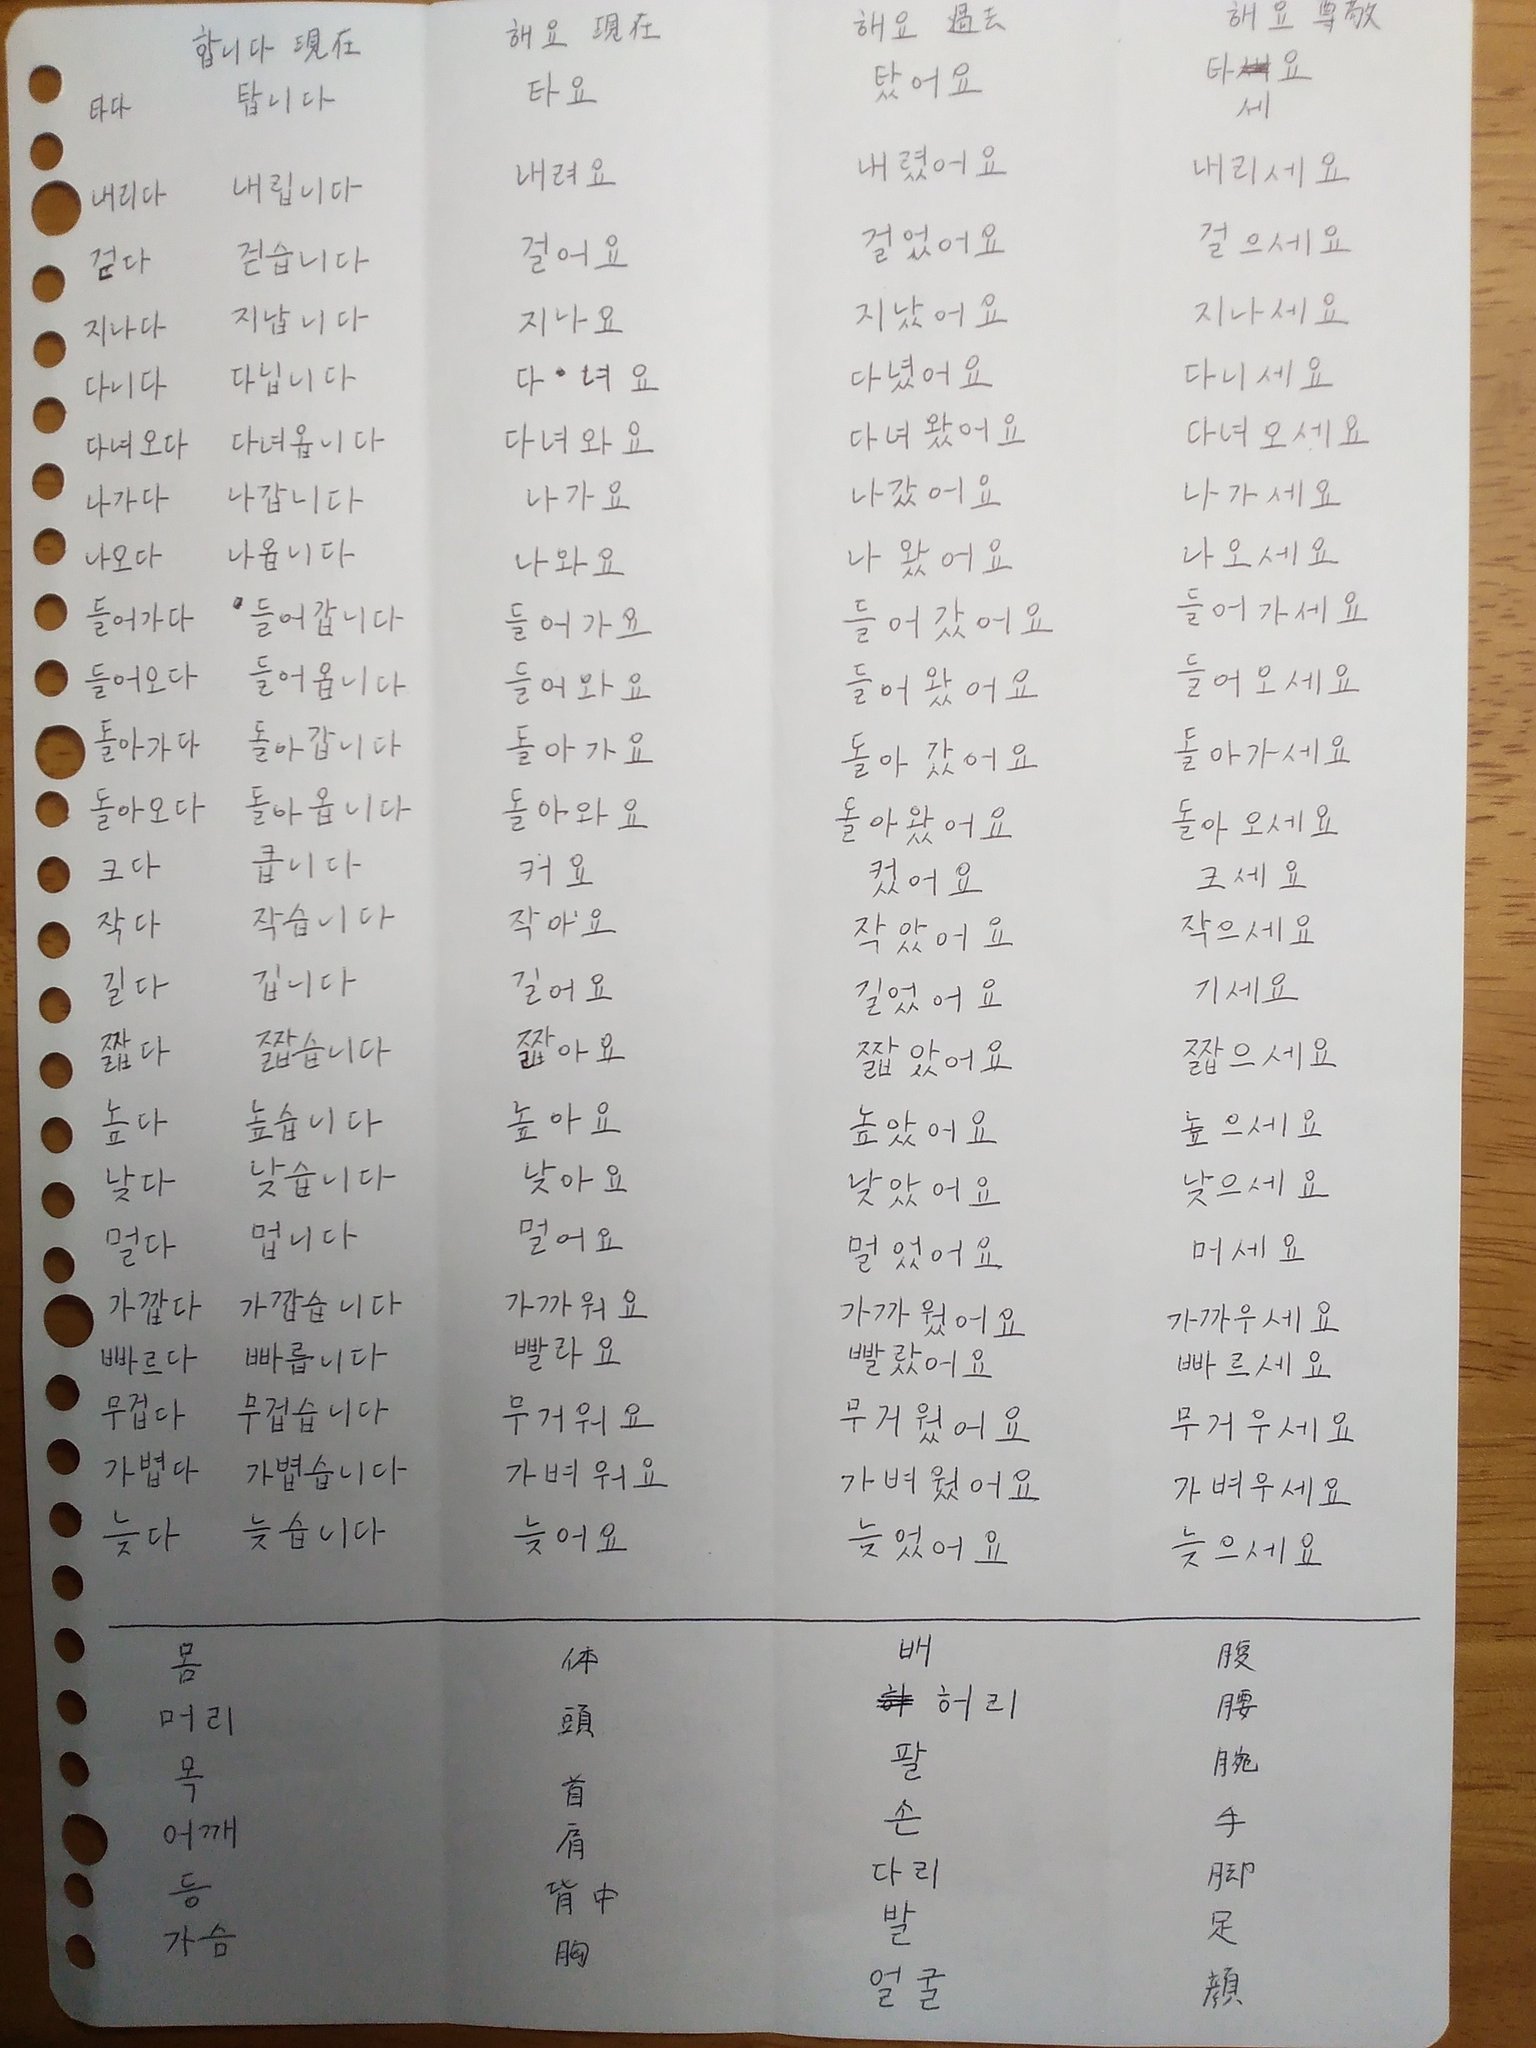 합니다 現在 해요 現在 해요 過去 해요 尊敬
타다 탑니다 타요 탔어요 타세요
내리다 내립니다 내려요 내렸어요 내리세요
걷다 걷습니다 걸어요 걸었어요 걸으세요
지나다 지납니다 지나요 지났어요 지나세요
다니다 다닙니다 다녀요 다녔어요 다니세요
다녀오다 다녀옵니다 다녀와요 다녀왔어요 다녀오세요
나가다 나갑니다 나가요 나갔어요 나가세요
나오다 나옵니다 나와요 나왔어요 나오세요
들어가다 들어갑니다 들어가요 들어갔어요 들어가세요
들어오다 들어옵니다 들어와요 들어왔어요 들어오세요
돌아가다 돌아갑니다 돌아가요 돌아갔어요 돌아가세요
돌아오다 돌아옵니다 돌아와요 돌아왔어요 돌아오세요
크다 큽니다 커요 컸어요 크세요
작다 작습니다 작아요 작았어요 작으세요
길다 깁니다 길어요 길었어요 기세요
짧다 짧습니다 짧아요 짧았어요 짧으세요
높다 높습니다 높아요 높았어요 높으세요
낮다 낮습니다 낮아요 낮았어요 낮으세요
멀다 멉니다 멀어요 멀었어요 머세요
가깝다 가깝습니다 가까워요 가까웠어요 가까우세요
빠르다 빠릅니다 빨라요 빨랐어요 빠르세요
무겁다 무겁습니다 무거워요 무거웠어요 무거우세요
가볍다 가볍습니다 가벼워요 가벼웠어요 가벼우세요
늦다 늦습니다 늦어요 늦었어요 늦으세요
몸 体 배 腹
머리 頭 허리 腰
목 首 팔 腕
어깨 肩 손 手
등 背中 다리 脚
가슴 胸 발 足
얼굴 顔